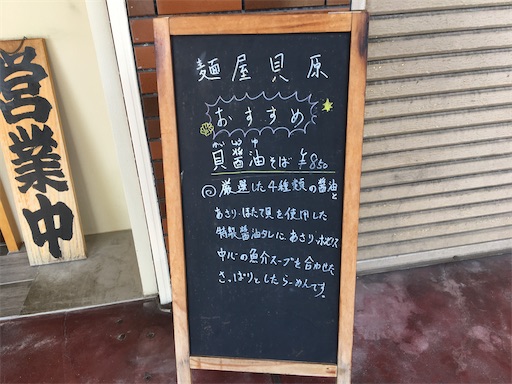 営業中
麺屋貝原
おすすめ
貝醤油そば ¥850
◎厳選した4種類の醤油と
あさり・ほたて貝を使用した
特製醤油タレに、あさり・ホンビノス
中心の魚介スープを合わせた
さっぱりとしたらーめんです。